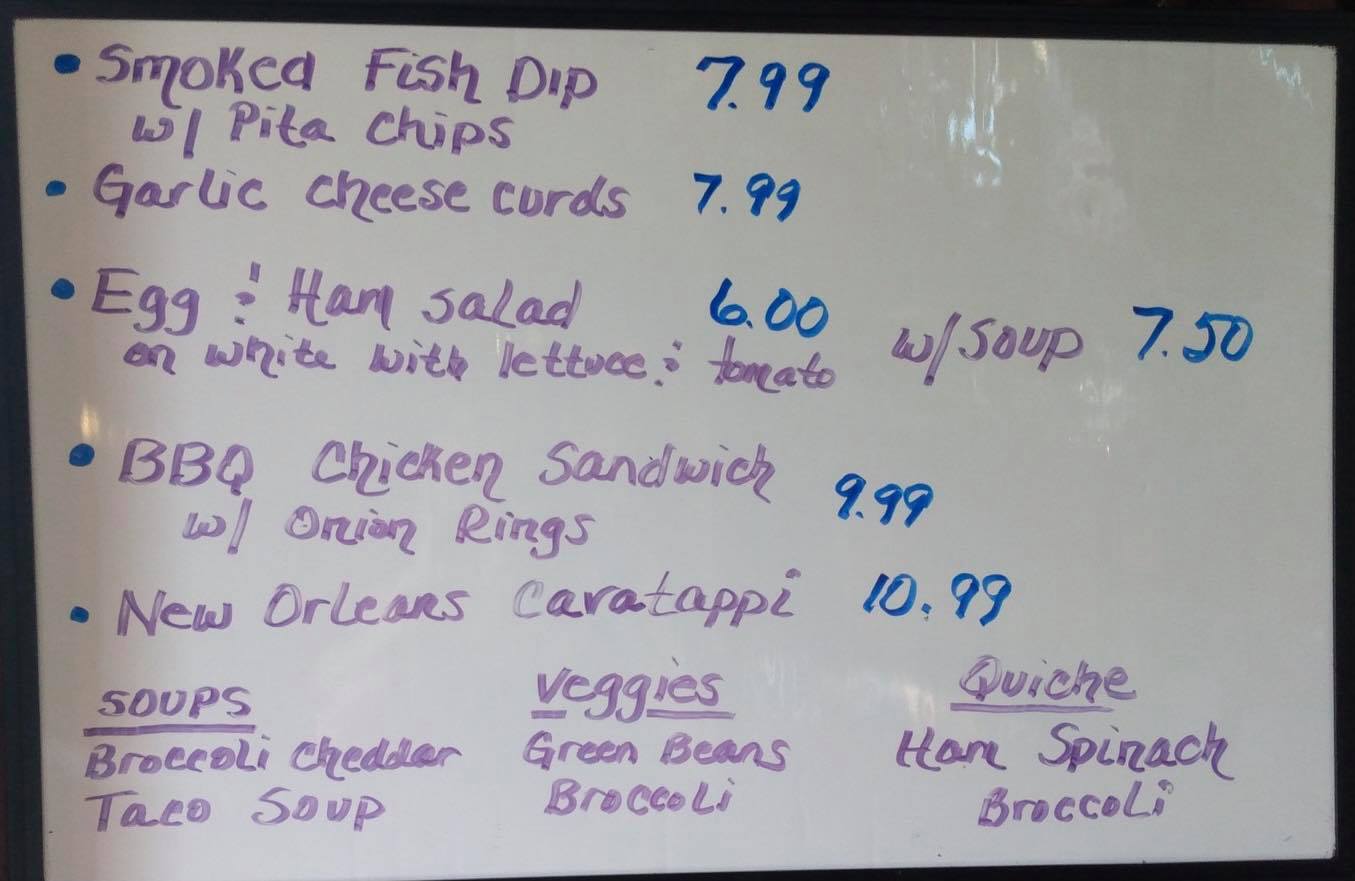 • Smoked Fish Dip 7.99
w/ Pita chips
• Garlic cheese curds 7.99
• Egg & Ham salad 6.00
on white with lettuce & tomato w/ soup 7.50
• BBQ Chicken Sandwich 9.99
w/ Onion Rings
• New Orleans Cavatappi 10.99
Soups Veggies Quiche
Broccoli cheddar Green Beans Ham Spinach
Taco Soup Broccoli Broccoli